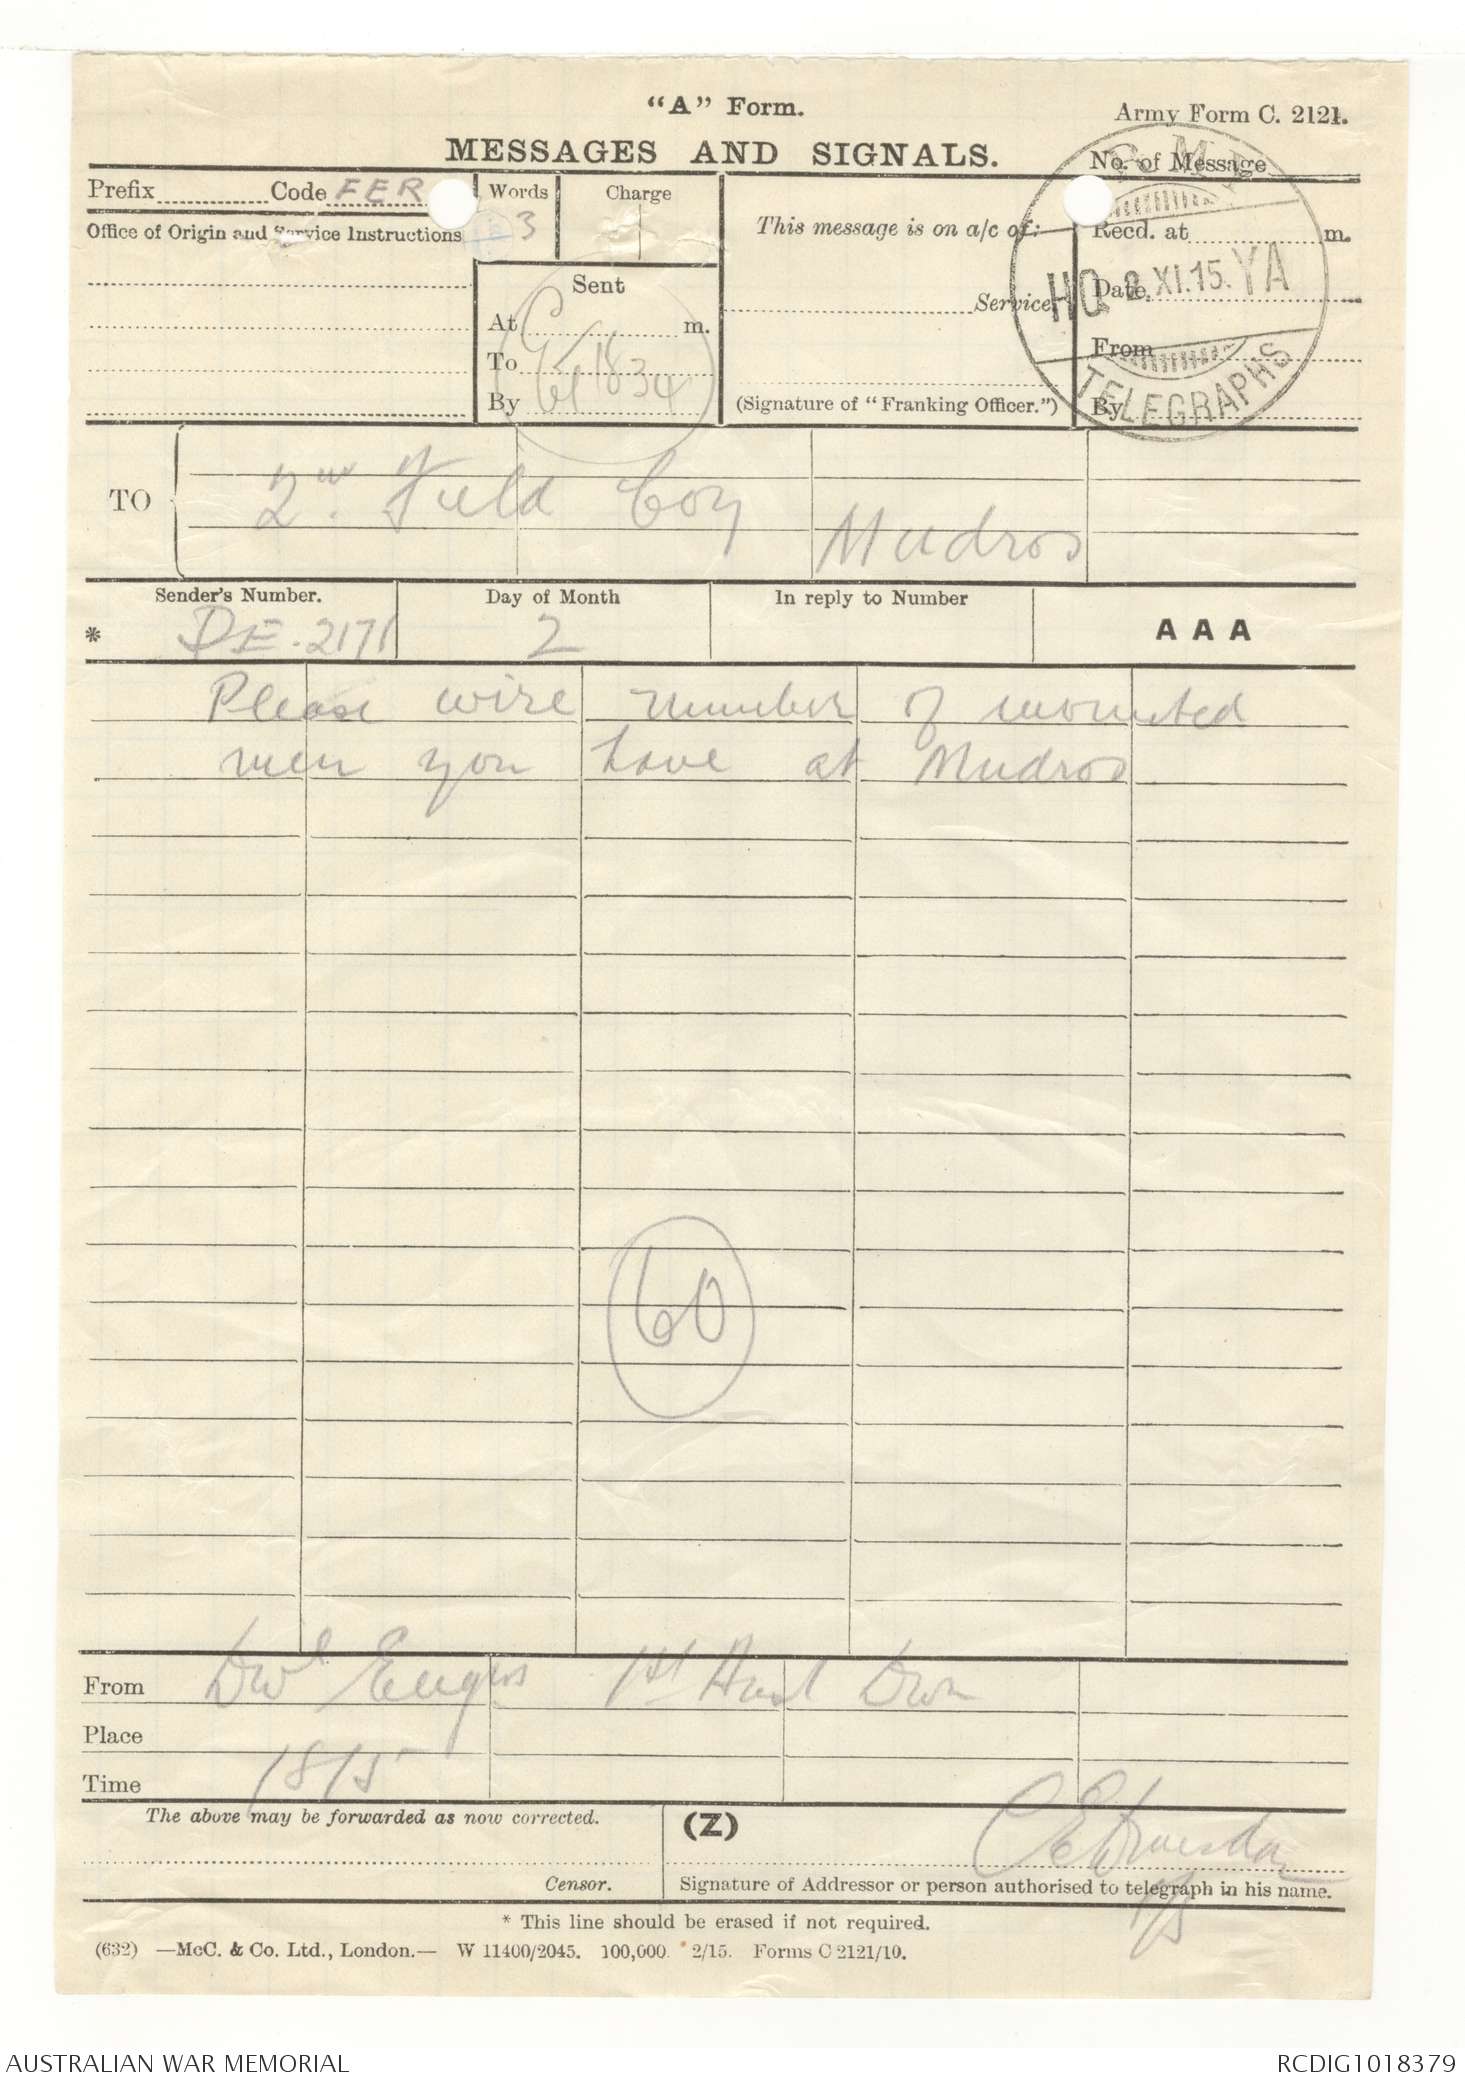 "A" Form.
Army Form C. 2121.
MESSAGES AND SIGNALS.
No. of Message
Prefix Code FER
Words
3
Charge
This message is on a/c of:
Recd. at m.
Office of Origin and Service Instructions
Sent
At m.
To
By
1834
Service
Date
HQ 2 XI.15. YA
From
By
TELEGRAPHS
(Signature of "Franking Officer.")
TO
2nd Field Coy Mudros
Sender's Number.
Day of Month
In reply to Number
AAA
* DE. 2171 2
Please wire number of mounted
men you have at Mudros
60
From Divl Engrs 1st Aust Divn
Place
Time 1815
The above may be forwarded as now corrected.
(Z)
Censor.
Signature of Addressor or person authorised to telegraph in his name.
* This line should be erased if not required.
(632) —McC. & Co. Ltd., London.— W 11400/2045. 100,000. 2/15. Forms C 2121/10.
AUSTRALIAN WAR MEMORIAL
RCDIG1018379